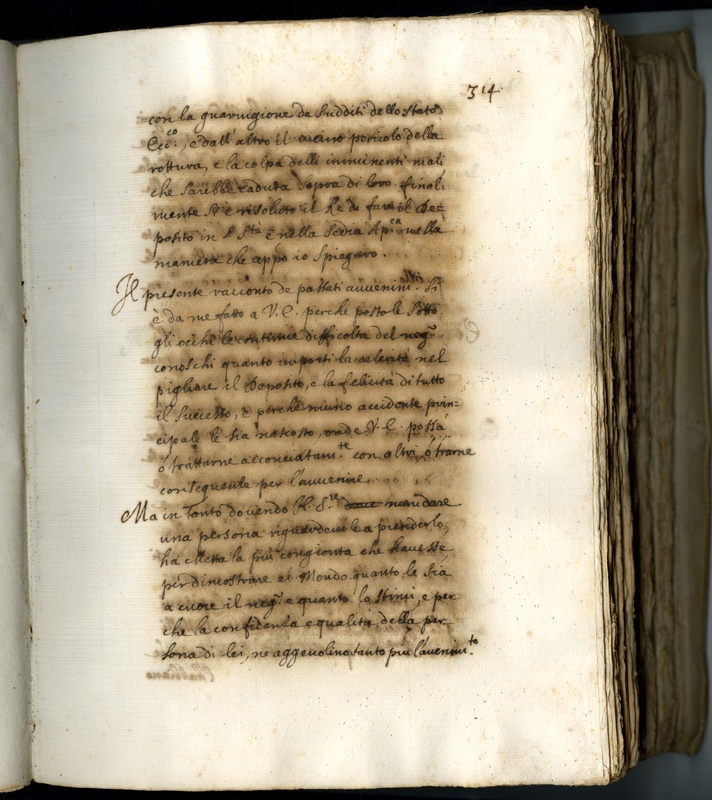 314.
con la guarnigione de Sudditi dello stato
Ecc.co, e dall'altro il vicino pericolo della
rottura, e la colpa delli imminenti mali
che sarebbe caduta sopra di loro. final:
mente si è risoluto il Re di fare il De=
posito in S. Stà e nella Sedia Ap.ca nella
maniera che appo io spiegaro.
Il presente racconto de passati auuenim.ti si
è da me fatto a V.E. perche postole sotto
gli occhi le continue difficoltà del neg.o
conoschi quanto importi la celerità nel
pigliare il Deposito, e la felicità di tutto
il successo, e perche niuno accidente prin=
cipale le sia nascosto, onde V.E. possa
ò trattarne acconciatam.te con altri, ò trarne
conseguenze per l'auuenire.
Ma in tanto douendo N. S.re mandare
una persona riguardeuole a prenderlo,
ha eletta la più congionta che hauesse
per dimostrare al Mondo quanto le sia
a cuore il neg.o e quanto lo stimi, e per
che la confidenza e qualità della per
sona di lei, ne aggeuolino tanto più l'auuenim.to